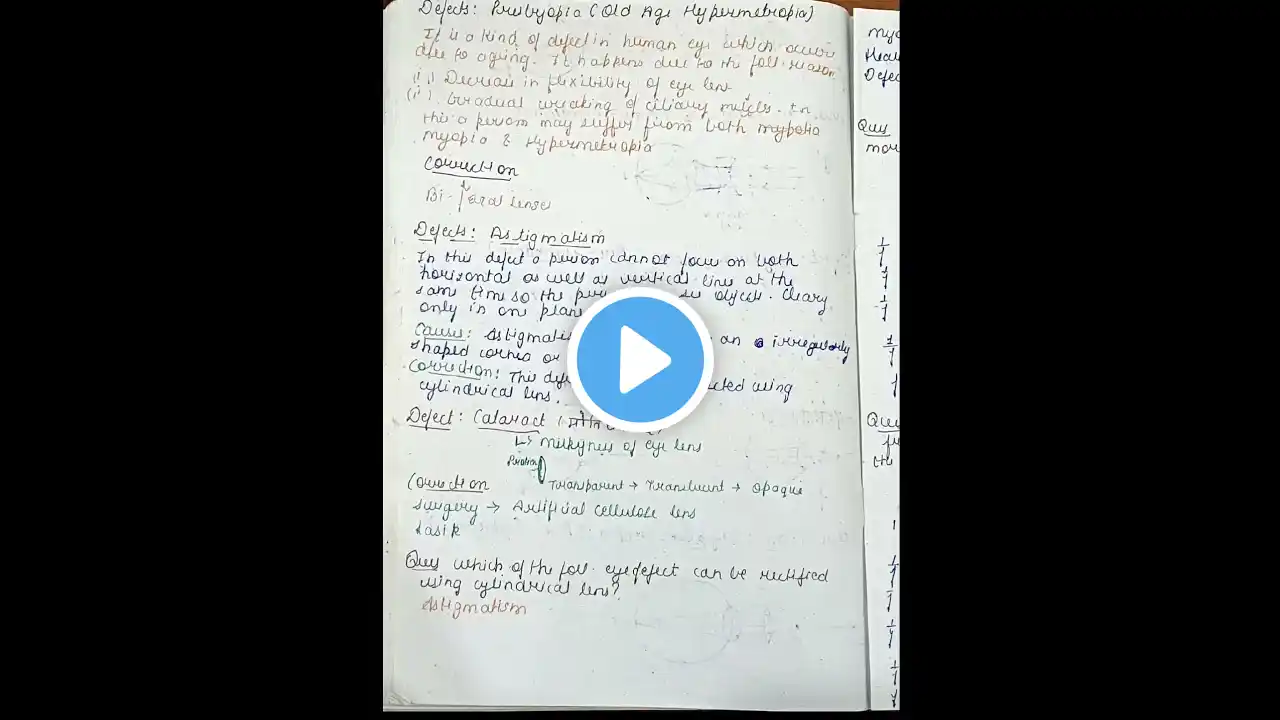 Defects: Presbyopia (Old Age Hypermetropia)
It is a kind of defect in human eye which occurs
due to ageing. It happens due to the foll. reason
(i) Decrease in flexibility of eye lens
(ii) Gradual weaking of ciliary muscles. In
this a person may suffer from both mypoia
myopia & Hypermetropia
Correction
Bi-focal lenses
Defects: Astigmatism
In this defect a person cannot focus on both
horizontal as well as vertical line at the
same time so the per see objects. cleary
only in one plan
Causes: Astigmatis an irregularly
shaped cornea or
Correction: This def cted using
cylindrical lens.
Defect: Cataract (
↳ milkyness of eye lens
Protien
Transparent → Translucent → Opaque
Correction
Surgery → Artificial cellulose lens
Lasik
Ques which of the foll. eye defect can be rectified
using cylindrical lens?
Astigmatism
myo
Defec
Ques
mor
1/f
1/f
1/f
1/f
Ques
the
1/f
1/f
1/f
1/f